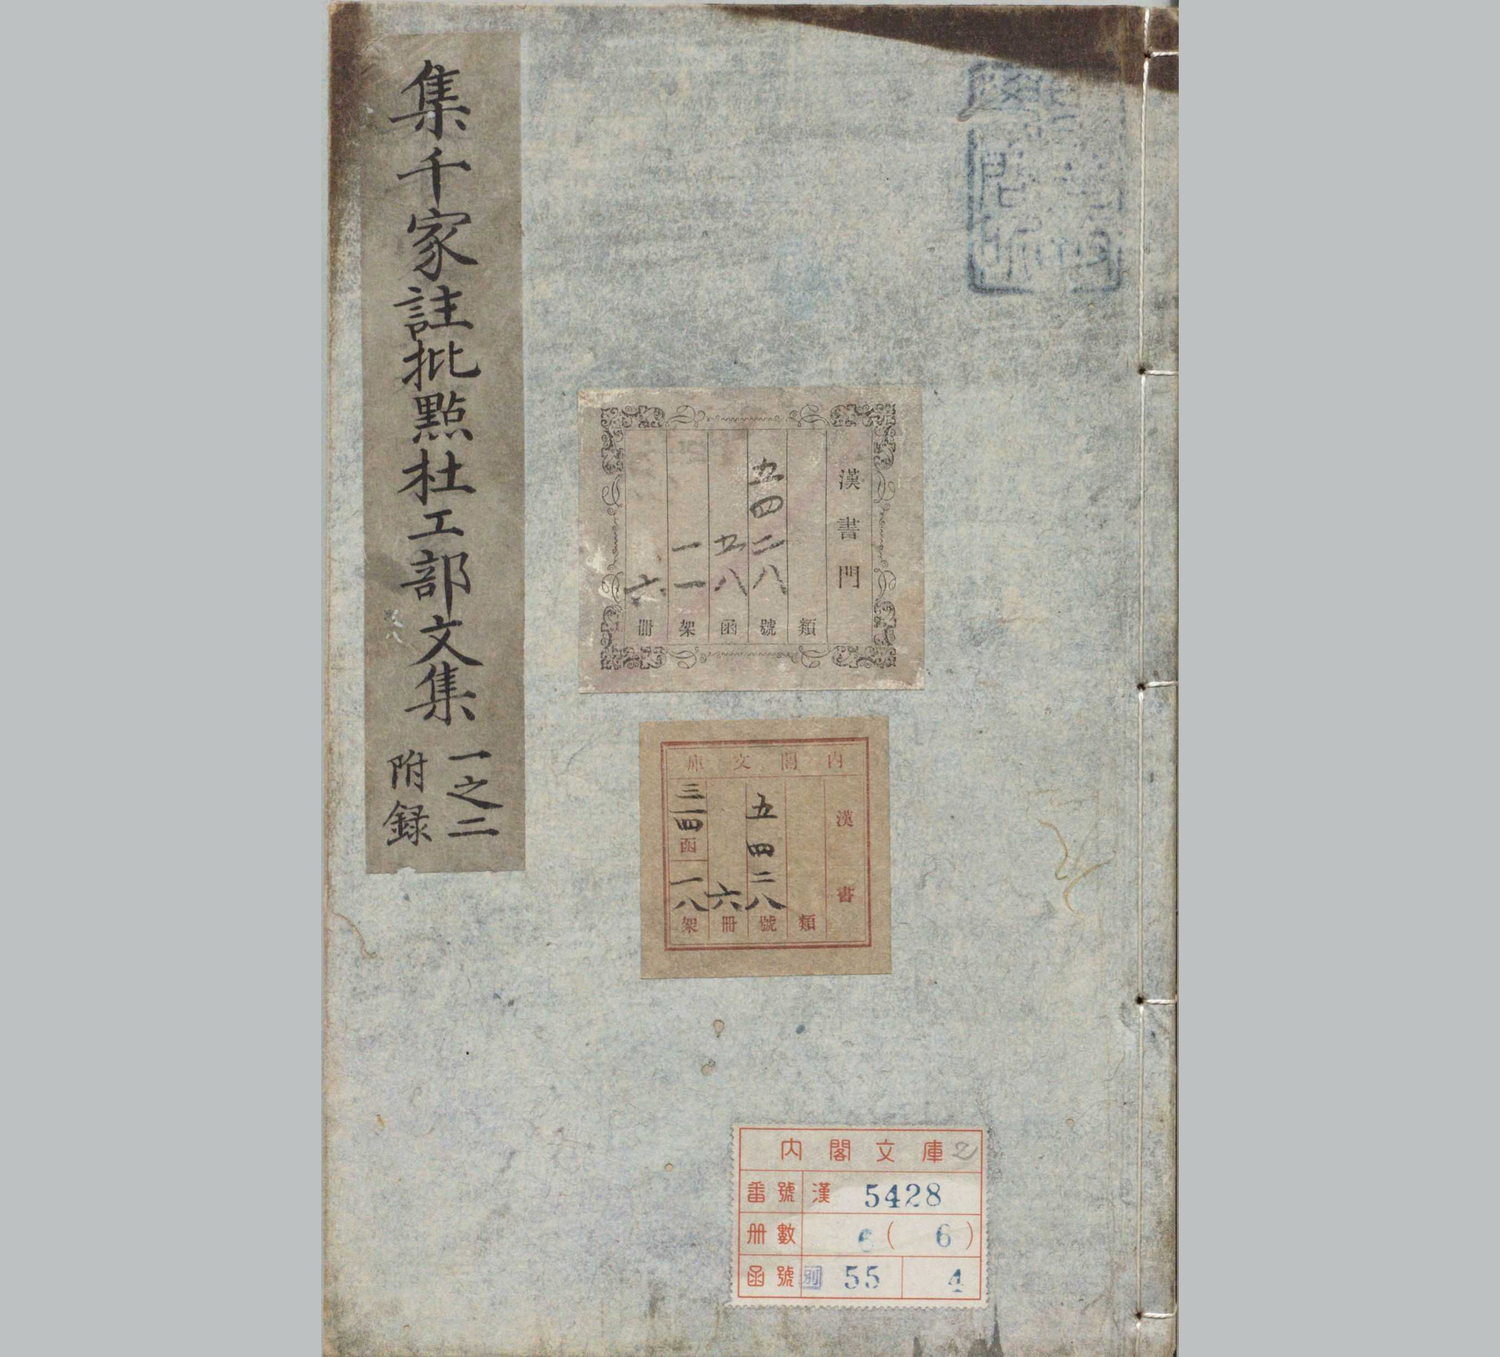 集千家註批點杜工部文集
一之二
附録
漢書門
類
五四二八號
五八函
一一架
六冊
内閣文庫
漢書
類
五四二八號
六冊
三四函
一八架
内閣文庫 2
番號 漢 5428
冊數 6 ( 6 )
函號 別 55 4